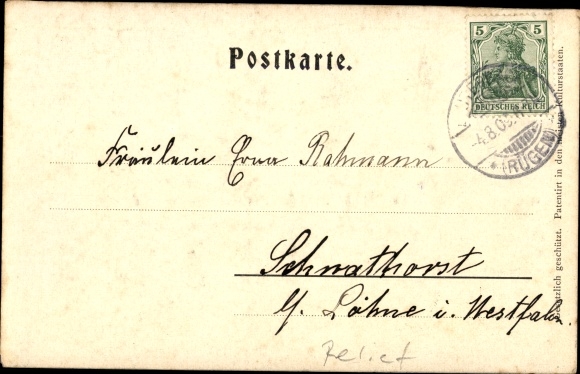 Postkarte.
5 5
DEUTSCHES REICH
4.8.0
(RÜGEN)
Fräulein Erna Rahmann
Schnathorst
b/ Löhne i. Westfalen
Relief
Gesetzlich geschützt. Patentirt in den Kulturstaaten.